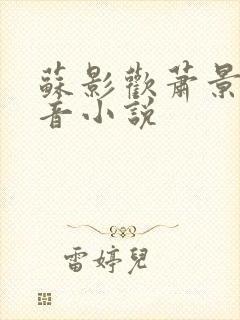 蘇影歡蕭景
音小說
雷婷兒